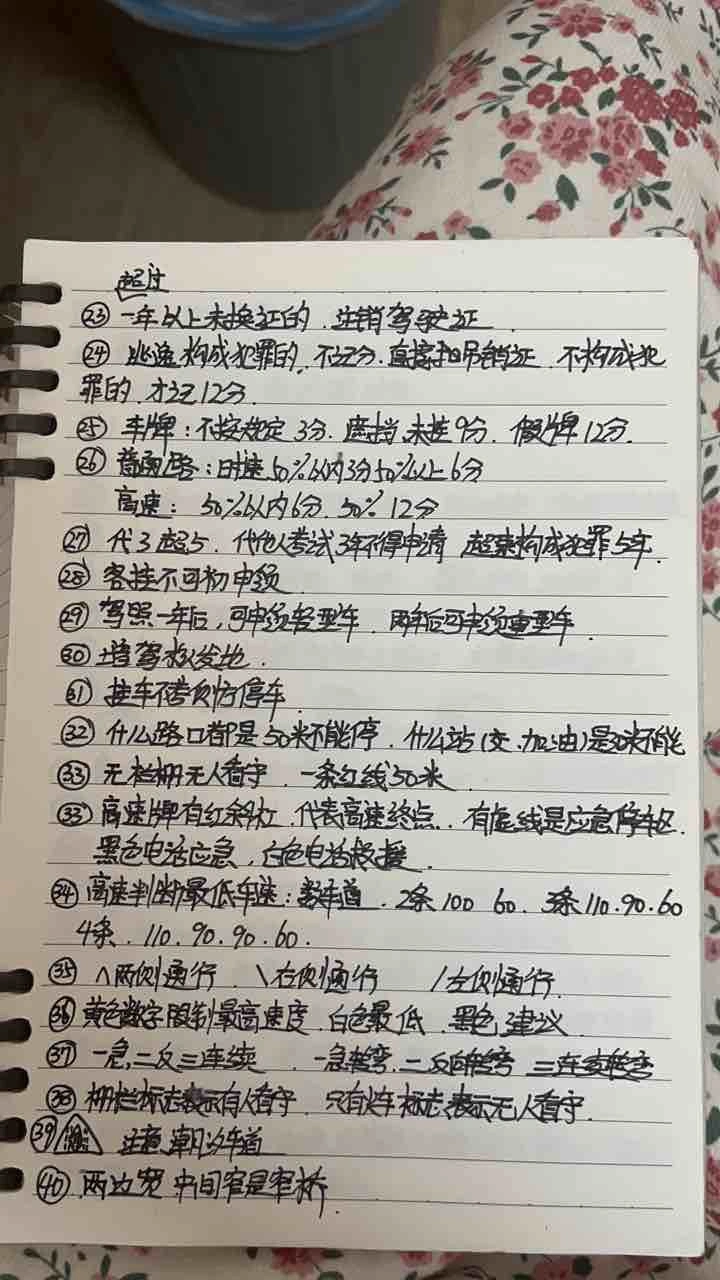 超过
㉓ 一年以上未换证的,注销驾驶证.
㉔ 逃逸构成犯罪的,不记分.直接扣吊销证.不构成犯
罪的.才记12分.
㉕ 车牌:不按规定3分.遮挡.未挂9分.假牌12分.
㉖ 普通路:时速50%以内3分50%以上6分
高速: 50%以内6分.50% 12分
㉗ 代3超5.代他人考试3年不得申请 超速构成犯罪5年.
㉘ 客挂不可初申领
㉙ 驾照一年后,可申领轻型车.两年后可申领重型车.
㉚ 增驾核发地.
㉛ 挂车不考侧方停车
㉜ 什么路口都是50米不能停.什么站(交.加油)是30米不能
㉝ 无栏栅无人看守.一条红线50米
㉝ 高速牌有红斜杠.代表高速终点.有虚线是应急停车区.
黑色电话应急,白色电话救援.
㉞ 高速判断最低车速:数车道.2条100 60. 3条110.90.60
4条.110.90.90.60.
㉟ ∧两侧通行 \右侧通行 /左侧通行.
㊱ 黄色数字限制最高速度.白色最低.黑色建议
㊲ 一急.二反三连续.一急转弯.二反向转弯 三连续转弯
㊳ 栅栏标志表示有人看守.只有火车标志.表示无人看守.
㊴ 注意潮汐车道
㊵ 两边宽中间窄是窄桥.